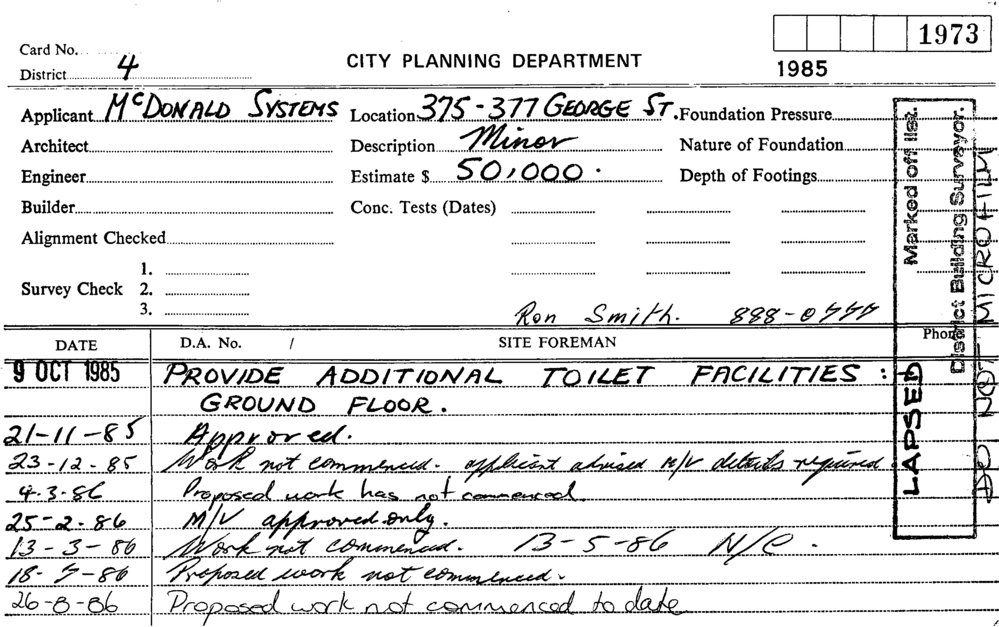 1973
1985
Card No.
District 4
CITY PLANNING DEPARTMENT
Applicant McDONALD SYSTEMS Location 375-377 GEORGE ST. Foundation Pressure
Architect Description Minor Nature of Foundation
Engineer Estimate $ 50,000. Depth of Footings
Builder Conc. Tests (Dates)
Alignment Checked
1.
Survey Check 2.
3.
Ron Smith. 888-0444
DATE D.A. No. / SITE FOREMAN Phone
9 OCT 1985 PROVIDE ADDITIONAL TOILET FACILITIES :
GROUND FLOOR.
21-11-85 Approved.
23-12-85 Work not commenced. applicant advised M/V details required
4-3-86 Proposed work has not commenced
25-2-86 M/V approved only.
13-3-86 Work not commenced. 13-5-86 N/C.
18-7-86 Proposed work not commenced.
26-8-86 Proposed work not commenced to date
LAPSED Marked off list.
District Building Surveyor.
DO NOT MICROFILM